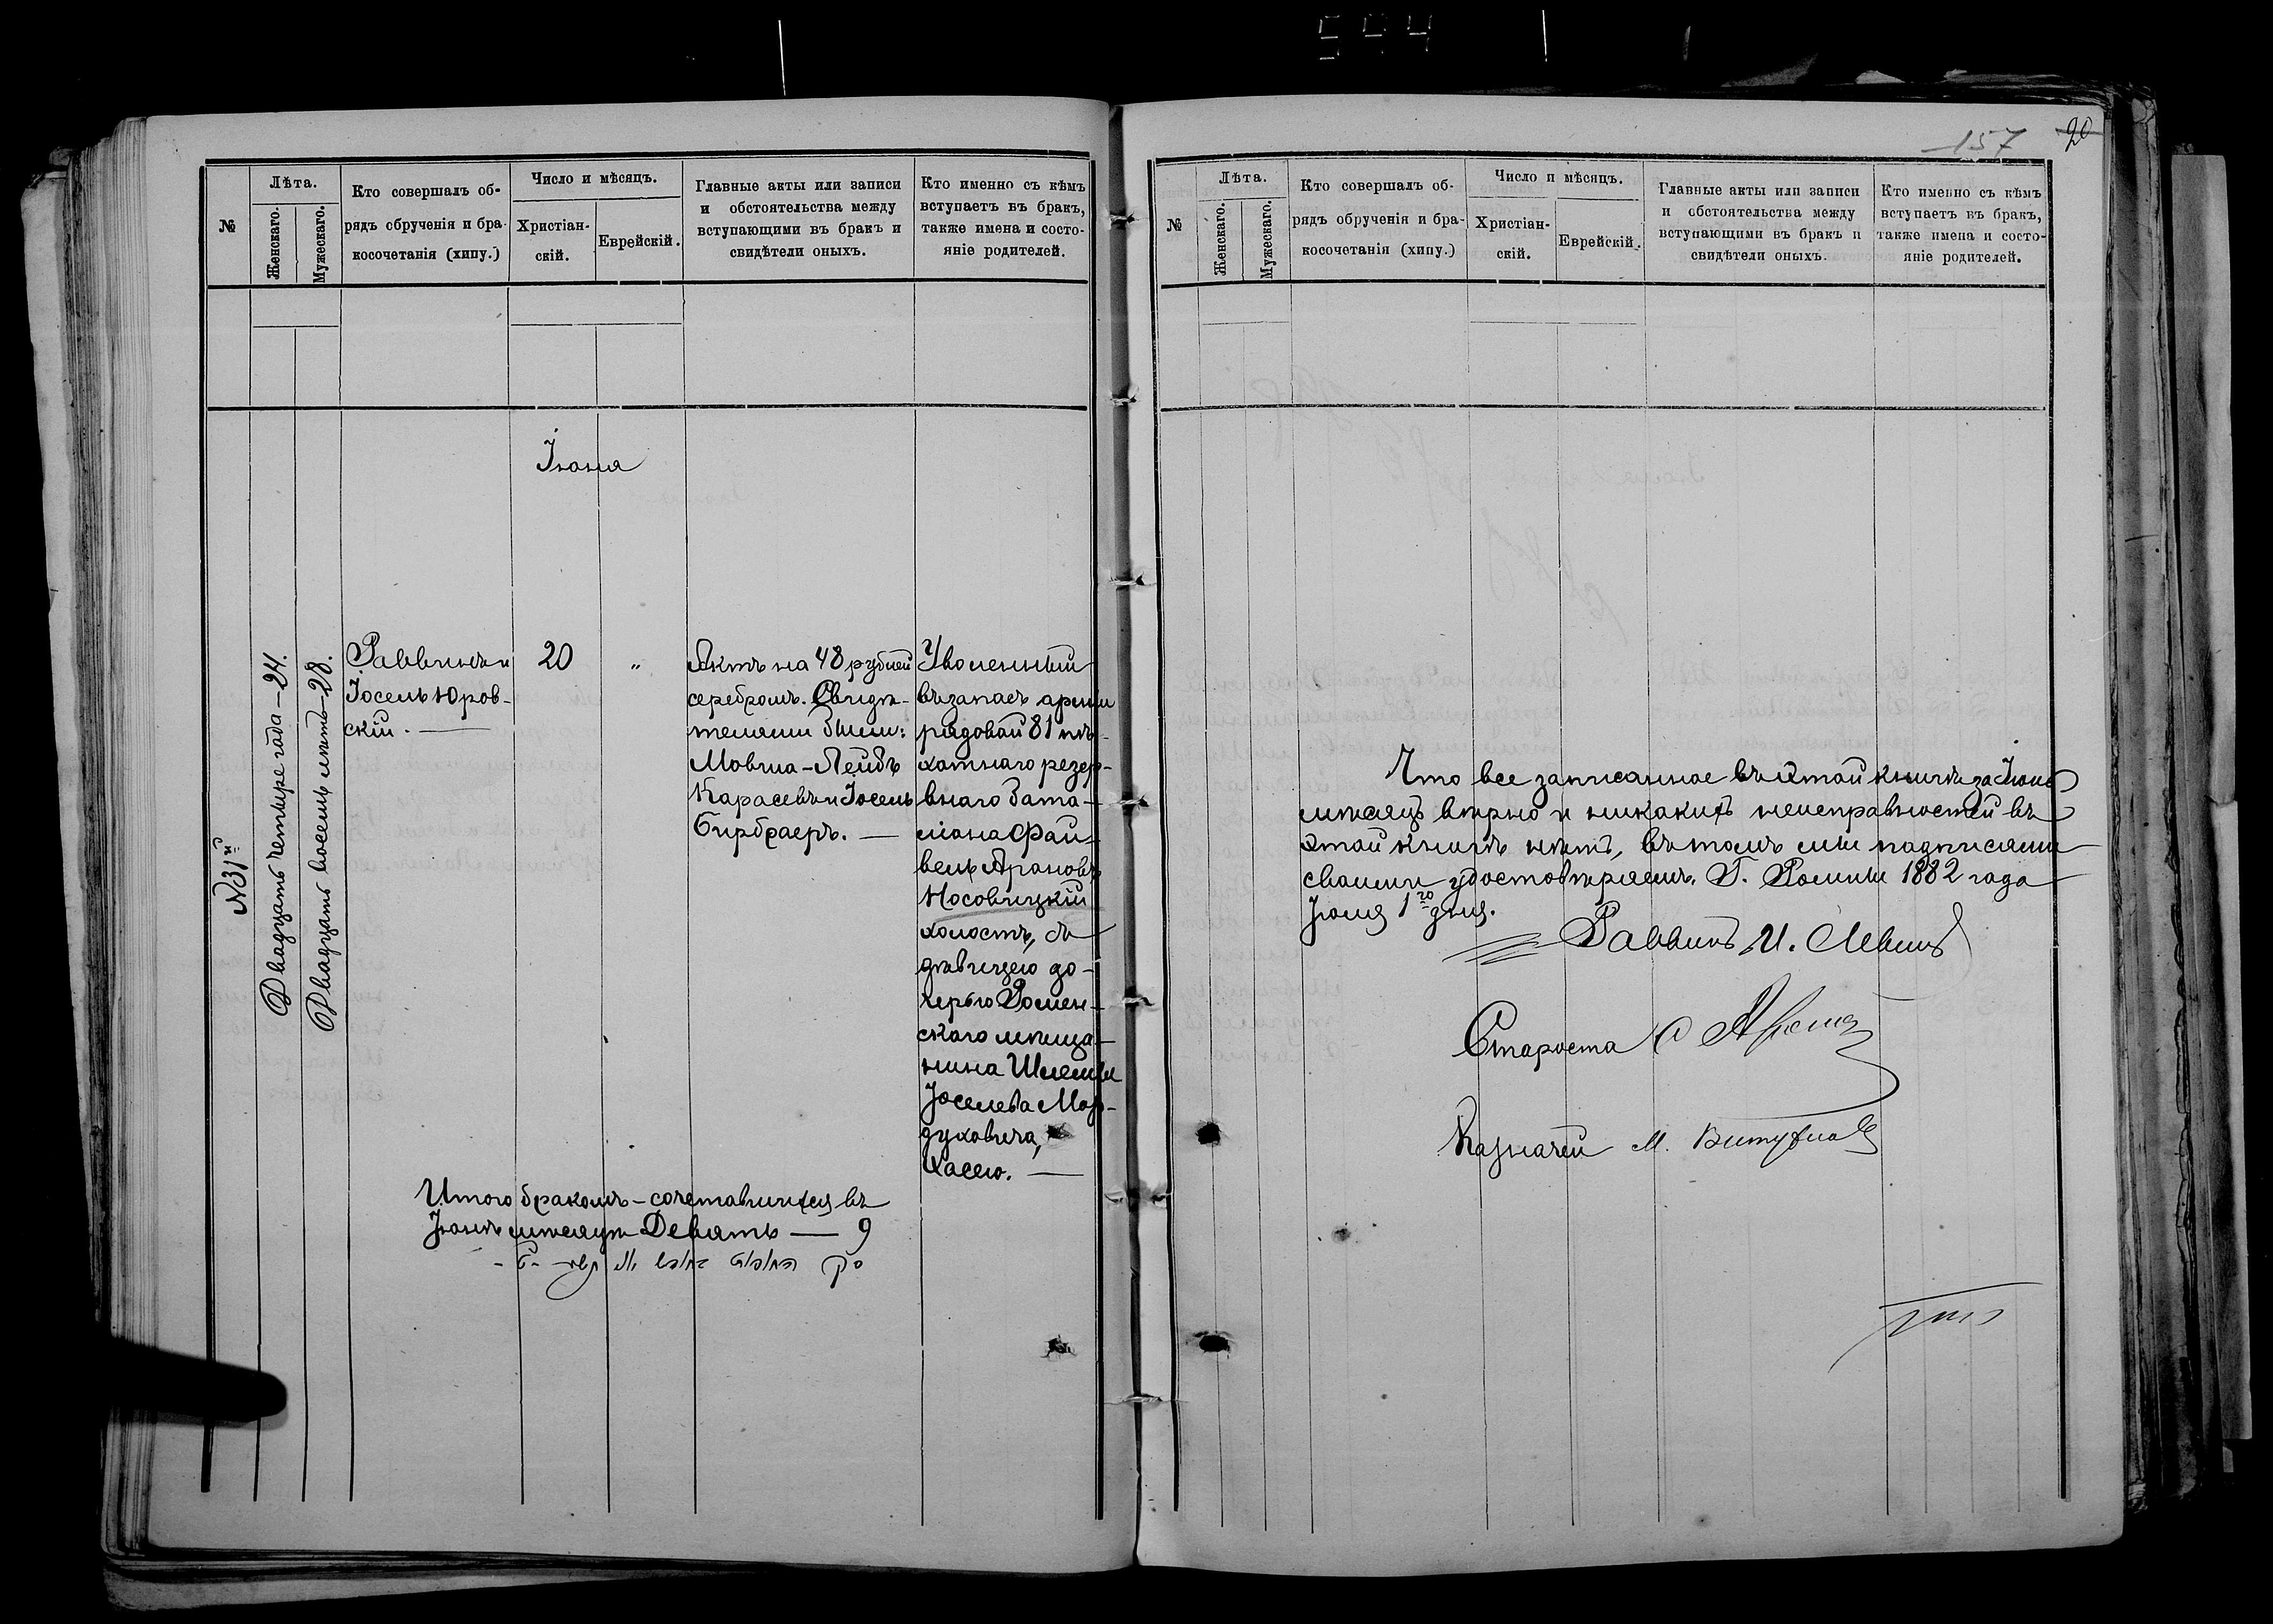 594
№
Лѣта.
Женскаго.
Мужескаго.
Кто совершалъ об-
рядъ обрученія и бра-
косочетанія (хипу.)
Число и мѣсяцъ.
Христіан-
скій.
Еврейскій.
Главные акты или записи
и обстоятельства между
вступающими въ бракъ и
свидѣтели оныхъ.
Кто именно съ кѣмъ
вступаетъ въ бракъ,
также имена и состо-
яніе родителей.
Іюня
№31й
Двадцать четыре года — 24.
Двадцать восемь лѣтъ — 28.
Раввинъ и
Іосель Юров-
скій. —
20
"
Актъ на 48 рублей
серебромъ. Свидѣ-
телями были:
Мовша-Лейбъ
Карасевъ и Іосель
Бирбраеръ. —
Уволенный
въ запасъ арміи
рядовой 81 пѣ-
хотнаго резер-
внаго бата-
ліона Фай-
вель Ароновъ
Носовицкій
холостъ, съ
дѣвицею до-
черью Ромен-
скаго мѣща-
нина Шлемы
Іоселева Мор-
духовича,
Хасею. —
Итого бракомъ-сочетавшихся въ
Іюнѣ мѣсяцѣ Девять — 9
157
20
№
Лѣта.
Женскаго.
Мужескаго.
Кто совершалъ об-
рядъ обрученія и бра-
косочетанія (хипу.)
Число и мѣсяцъ.
Христіан-
скій.
Еврейскій.
Главные акты или записи
и обстоятельства между
вступающими въ бракъ и
свидѣтели оныхъ.
Кто именно съ кѣмъ
вступаетъ въ бракъ,
также имена и состо-
яніе родителей.
Что все записанное въ этой книгѣ за Іюнь
мѣсяцъ вѣрно и никакихъ неисправностей въ
этой книгѣ нѣтъ, въ томъ мы подписями
своими удостовѣряемъ. Г. Ромны 1882 года
Іюля 1го дня.
Раввинъ И. Левинъ
Староста
Казначей М.